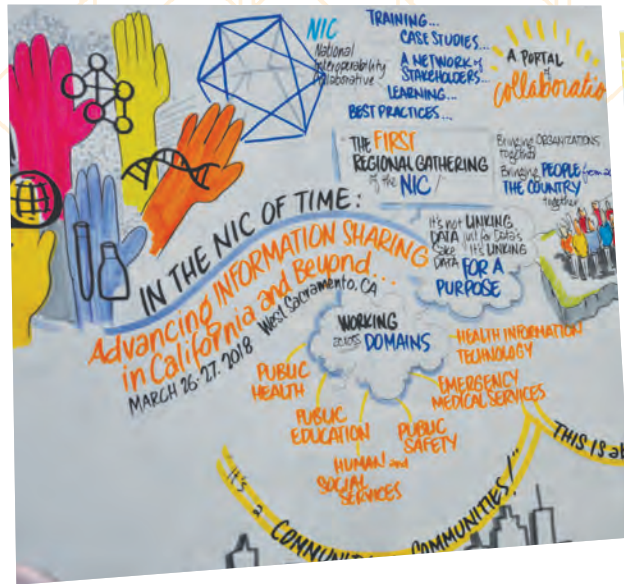 NIC
National
Interoperability
Collaborative
TRAINING...
CASE STUDIES...
A NETWORK of
STAKEHOLDERS...
LEARNING...
BEST PRACTICES...
A PORTAL
of
collaboratio
THE FIRST
REGIONAL GATHERING
of the NIC!
Bringing ORGANIZATIONS
together
Bringing PEOPLE from
THE COUNTRY
together
IN THE NIC OF TIME:
Advancing INFORMATION SHARING
in California and Beyond...
MARCH 26-27, 2018 West Sacramento, CA
It's not LINKING
DATA just for Data's
Sake It's LINKING
DATA FOR A
PURPOSE
WORKING
across DOMAINS
PUBLIC
HEALTH
PUBLIC
EDUCATION
HUMAN and
SOCIAL
SERVICES
PUBLIC
SAFETY
EMERGENCY
MEDICAL SERVICES
HEALTH INFORMATION
TECHNOLOGY
It's a COMMUNIT COMMUNITIES!"
THIS IS ab